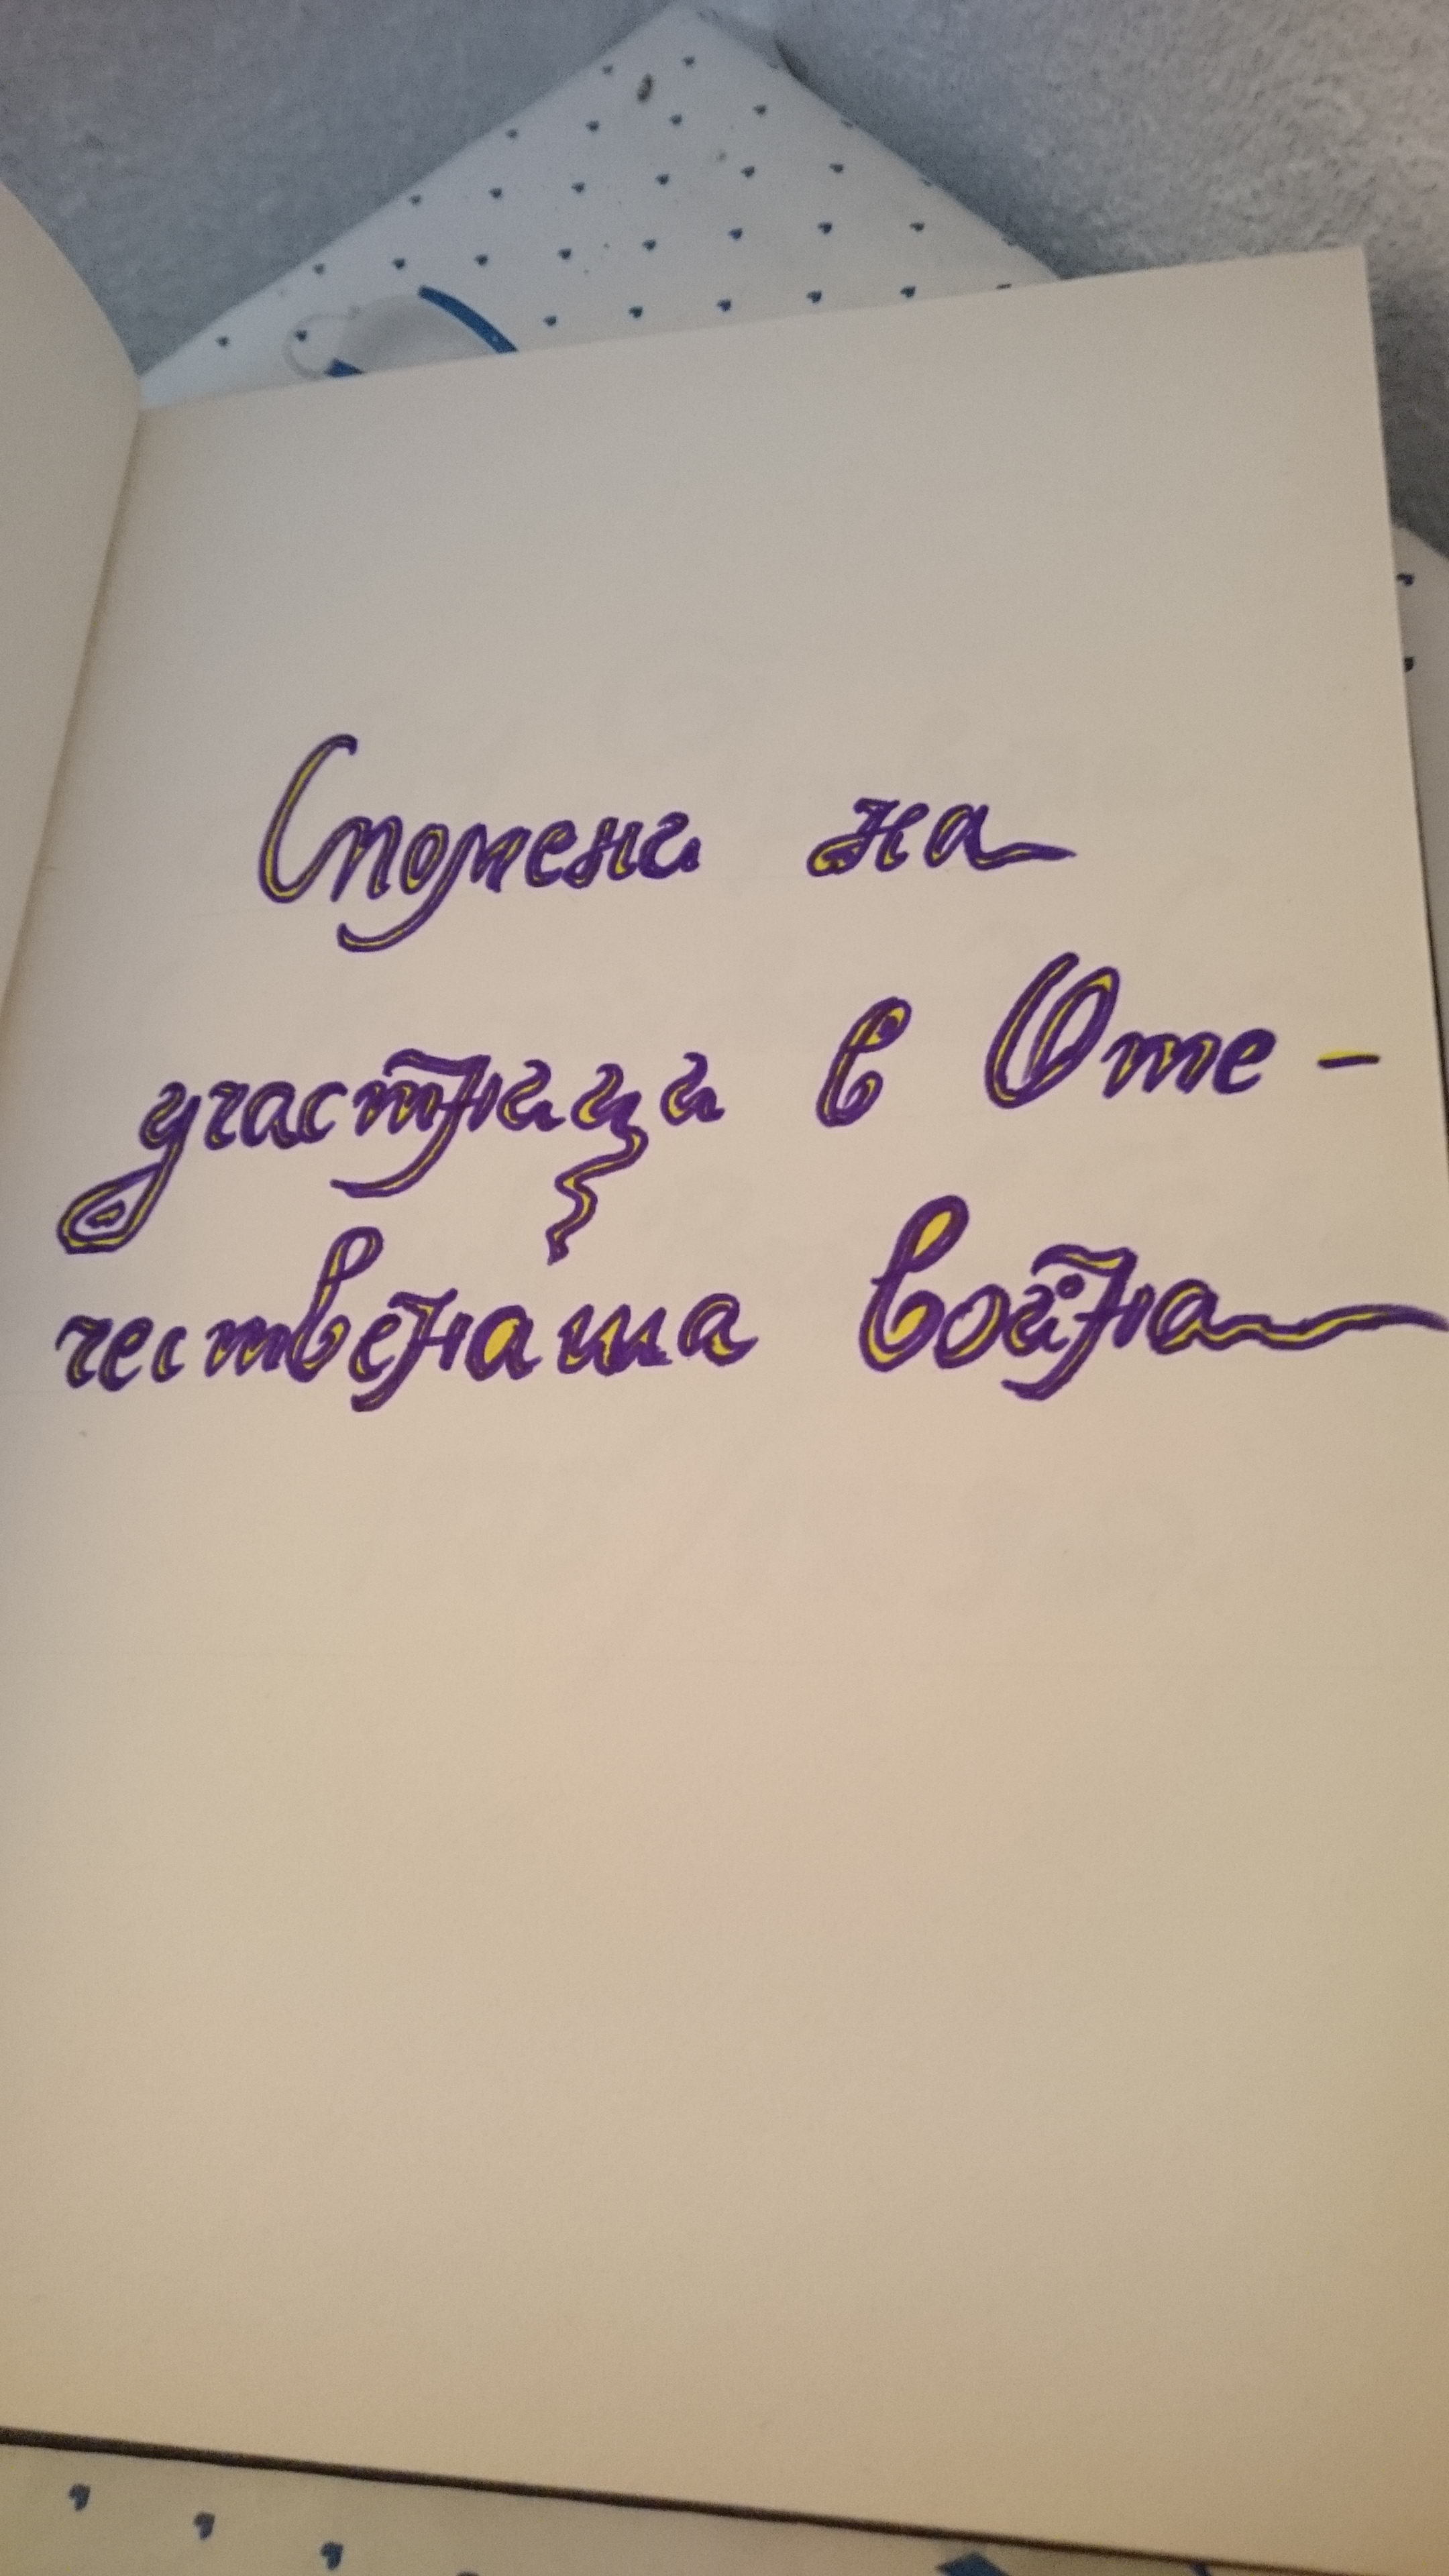 Спомени на
участници в Оте-
чествената война